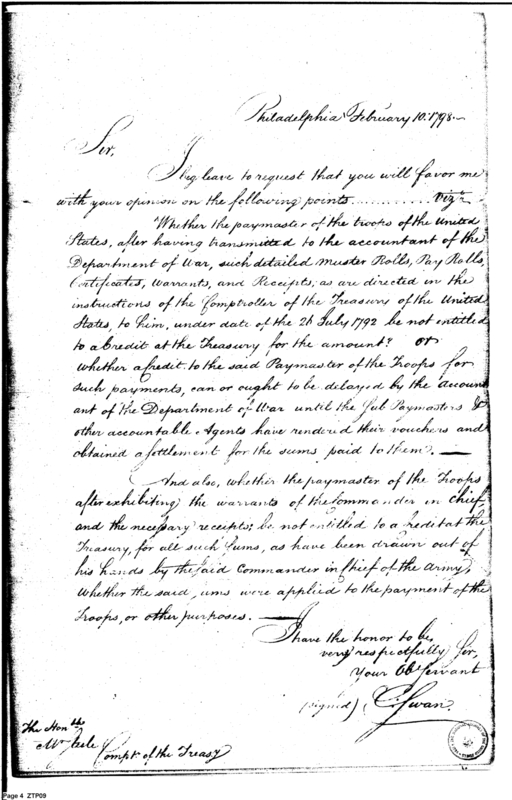 Philadelphia February 10. 1798.
Sir,
I beg leave to request that you will favor me
with your opinion on the following points ............ Vizt.
Whether the paymaster of the troops of the United
States, after having transmitted to the accountant of the
Department of War, such detailed Muster Rolls, Pay Rolls,
Certificates, Warrants, and Receipts, as are directed in the
instructions of the Comptroller of the Treasury of the United
States, to him, under date of the July 1792 be not entitled
to a Credit at the Treasury for the amount? or
whether a Credit to the said Paymaster of the Troops for
such payments, can or ought to be delayed by the account
ant of the Department of War until the Sub Paymasters &
other accountable Agents have rendered their vouchers and
obtained a settlement for the sums paid to them. —
And also, whether the paymaster of the Troops
after exhibiting the warrants of the Commander in Chief,
and the necessary receipts, be not entitled to a Credit at the
Treasury, for all such Sums, as have been drawn out of
his hands by the said Commander in Chief of the Army,
Whether the said ums were applied to the payment of the
Troops, or other purposes. —
I have the honor to be,
very respectfully Sir,
Your Ob Servant
(signed) C. Swan.
The Honble
Mr Steele
Compt. of the Treasy
Page 4 ZTP09